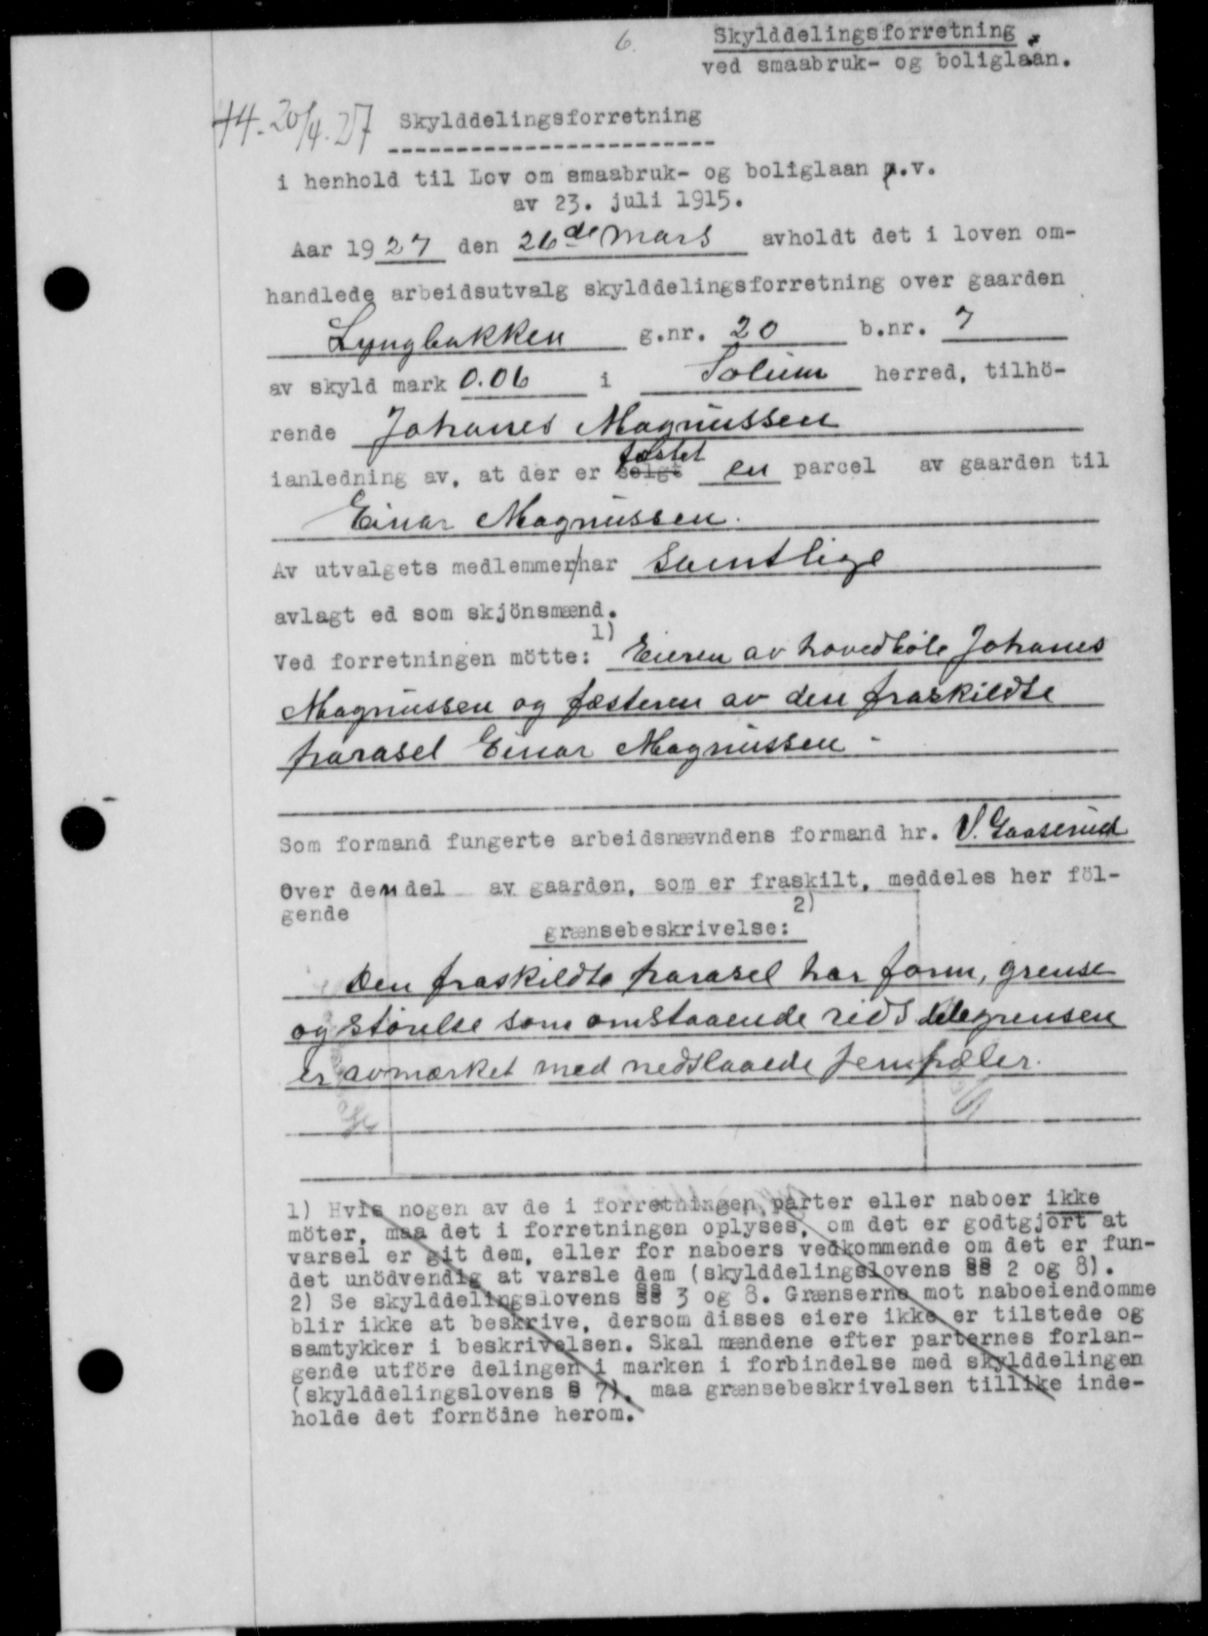 6.
Skylddelingsforretning
ved smaabruk- og boliglaan.
44. 20/4. 27
Skylddelingsforretning
i henhold til Lov om smaabruk- og boliglaan m.v.
av 23. juli 1915.
Aar 1927 den 26de Mars avholdt det i loven om-
handlede arbeidsutvalg skylddelingsforretning over gaarden
Lyngbakken g.nr. 20 b.nr. 7
av skyld mark 0.06 i Solum herred, tilhö-
rende Johanes Magnussen
ianledning av, at der er selgt fæstet en parcel av gaarden til
Einar Magnussen.
Av utvalgets medlemmer har samtlige
avlagt ed som skjönsmænd.
Ved forretningen mötte: 1) Eieren av hovedböle Johanes
Magnussen og fæsteren av den fraskildte
parasel Einar Magnussen -
Som formand fungerte arbeidsnævndens formand hr. V. Gaaserud
Over den del av gaarden, som er fraskilt, meddeles her föl-
gende
grænsebeskrivelse: 2)
Den fraskildte parasel har form, grense
og störelse som omstaaende rids delegrensen
er avmærket med nedslaaede jernpæler.
1) Hvis nogen av de i forretningen parter eller naboer ikke
möter, maa det i forretningen oplyses, om det er godtgjort at
varsel er git dem, eller for naboers vedkommende om det er fun-
det unödvendig at varsle dem (skylddelingslovens §§ 2 og 8).
2) Se skylddelingslovens §§ 3 og 8. Grænserne mot naboeiendomme
blir ikke at beskrive, dersom disses eiere ikke er tilstede og
samtykker i beskrivelsen. Skal mændene efter parternes forlan-
gende utföre delingen i marken i forbindelse med skylddelingen
(skylddelingslovens § 7), maa grænsebeskrivelsen tillike inde-
holde det fornödne herom.